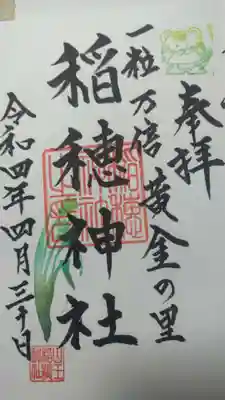 奉拝
一粒万倍 黄金の里
稲穂神社
令和四年四月三十日